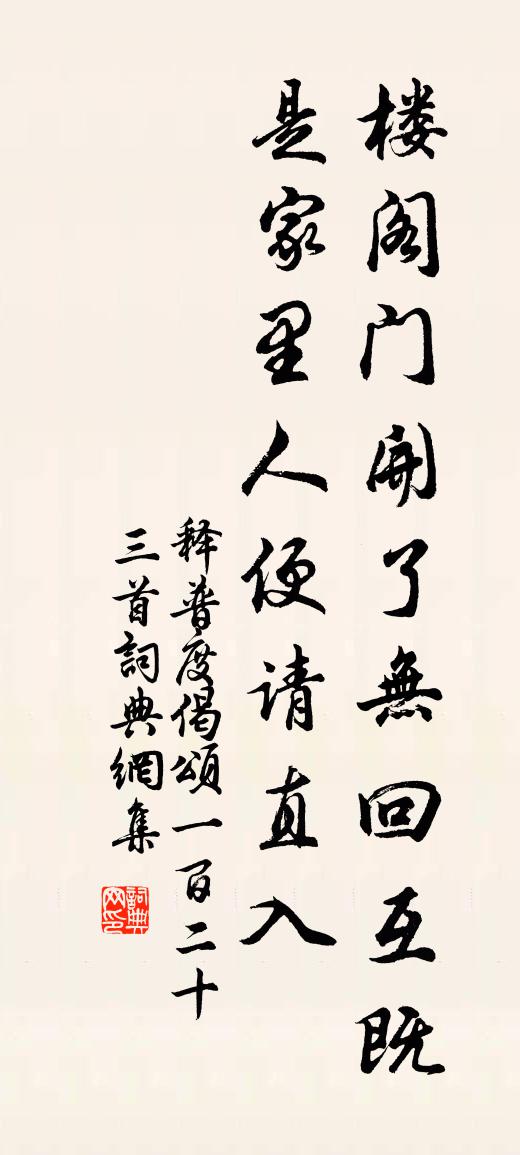 楼阁门開了無回互既
是家里人便请直入
释普度偈頌一百二十
三首詞典網集
詞典
网印